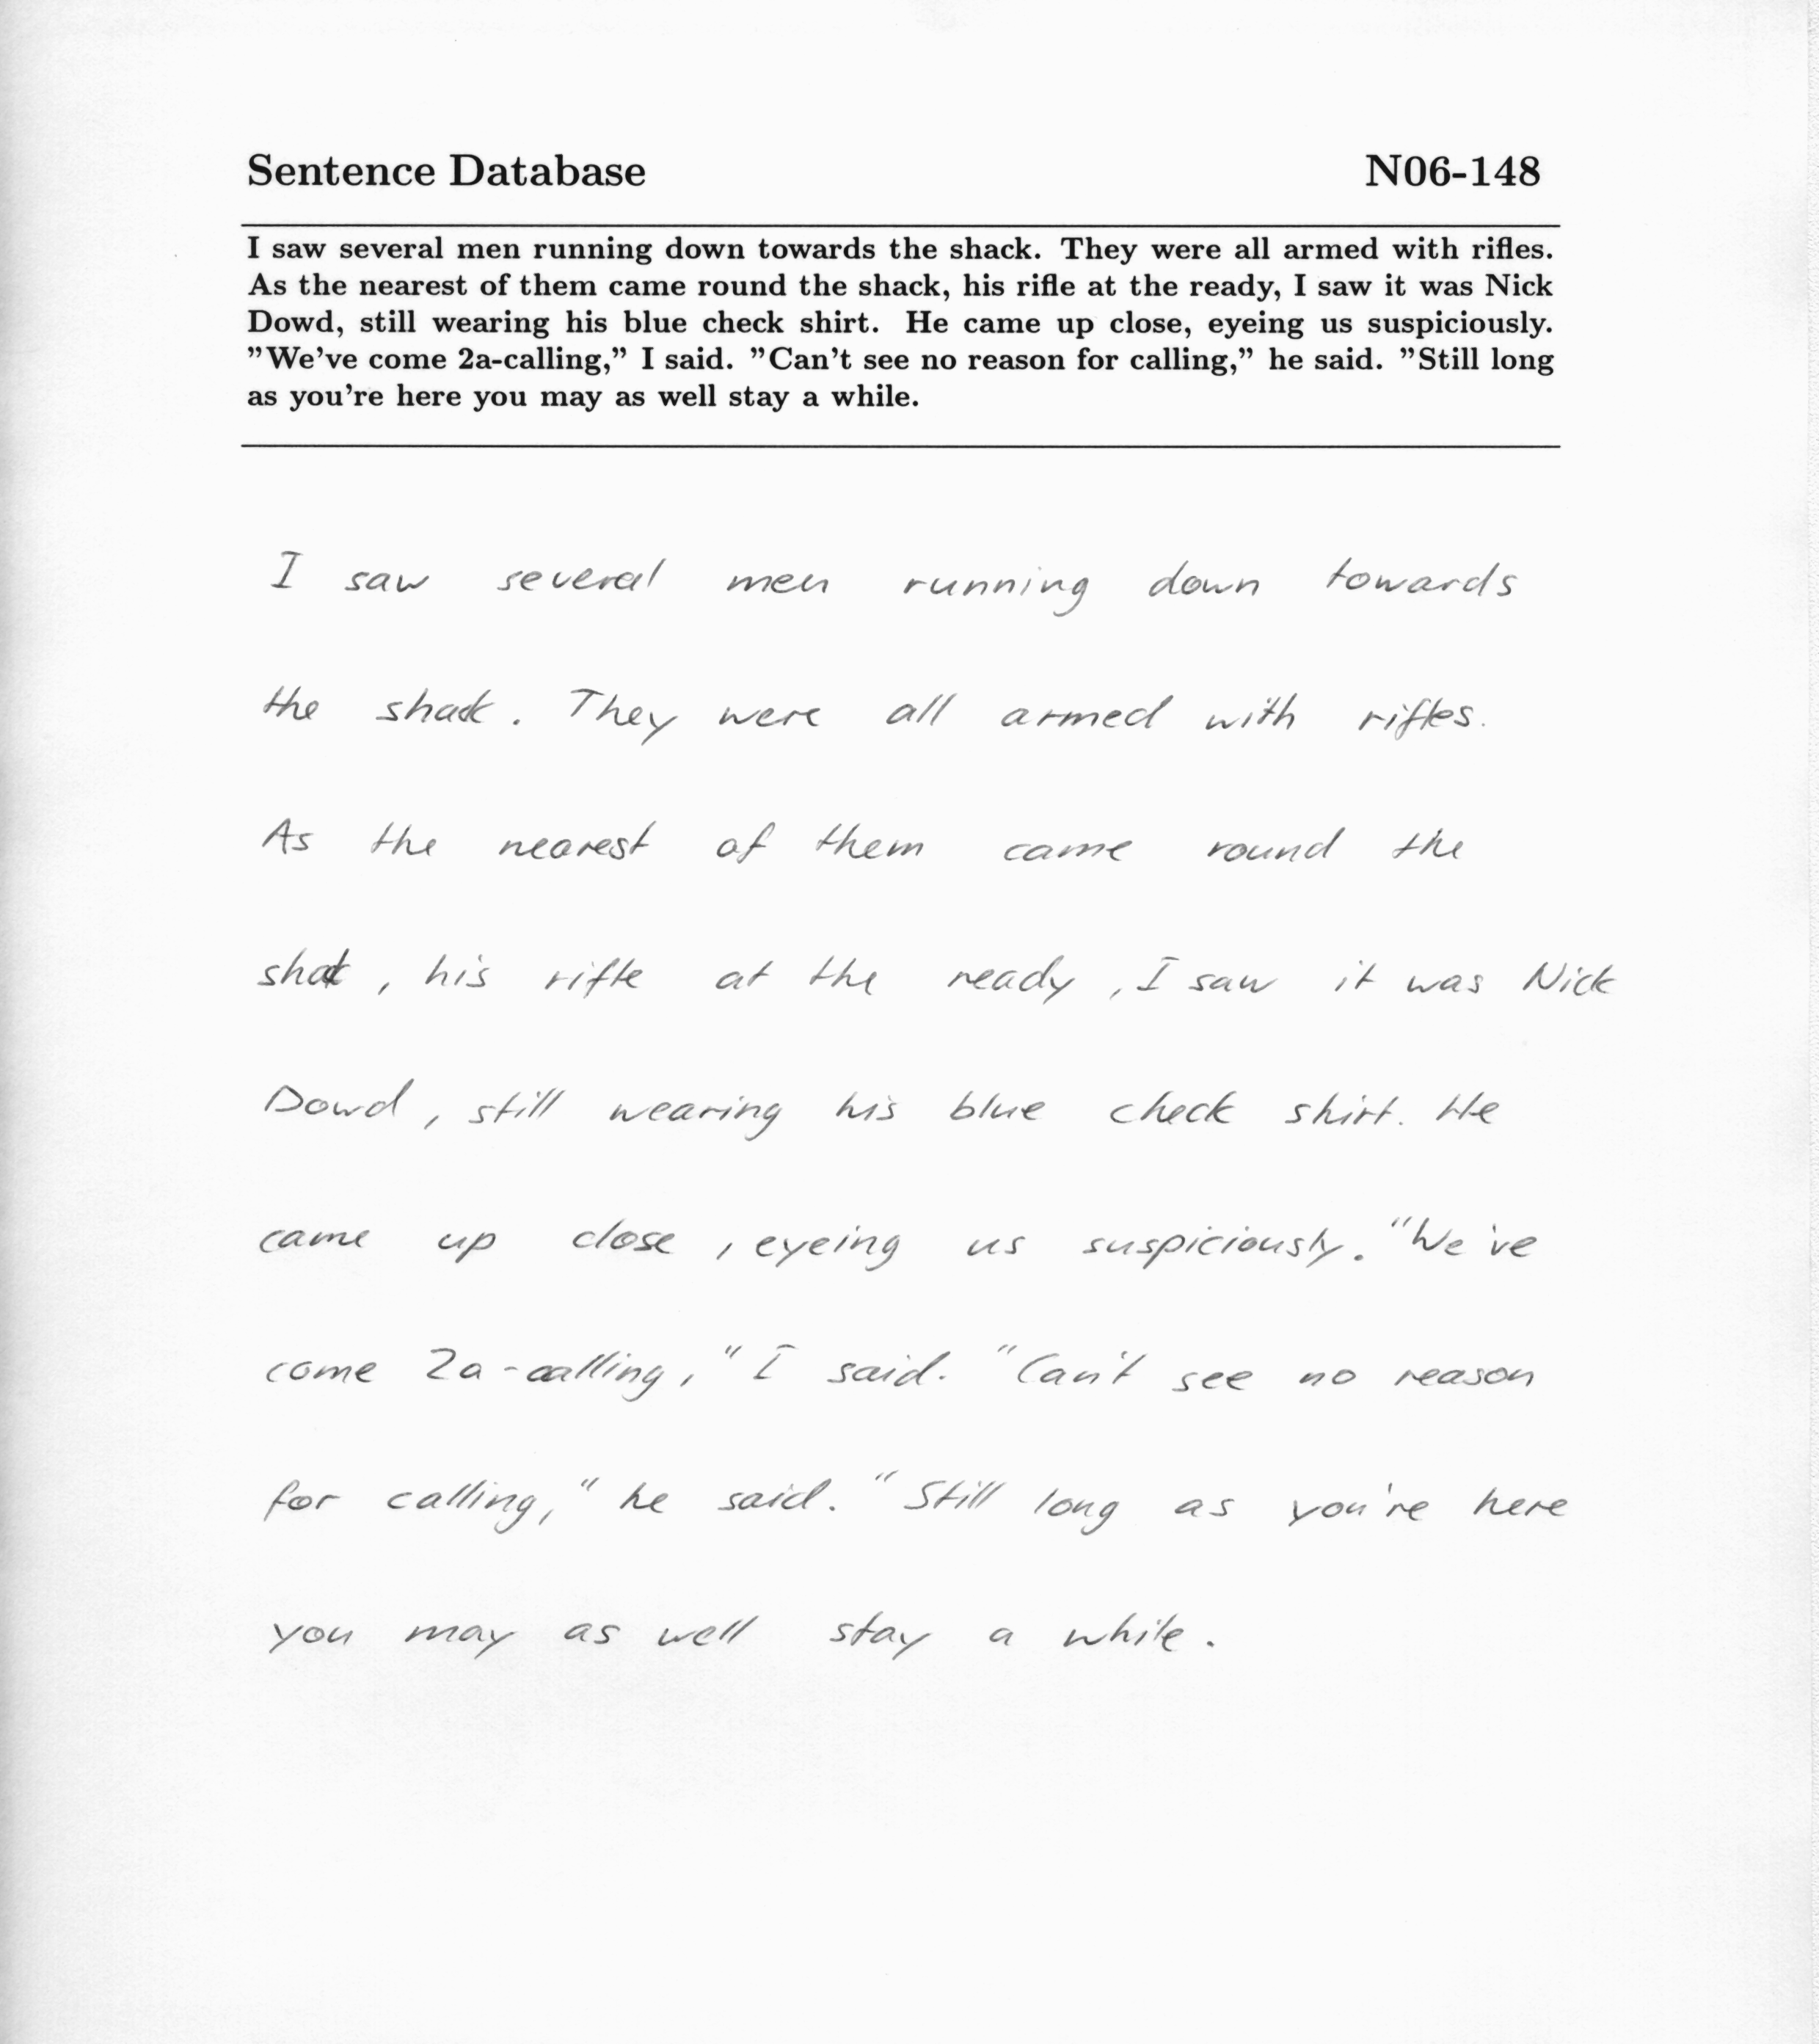 Sentence Database N06-148
I saw several men running down towards the shack. They were all armed with rifles.
As the nearest of them came round the shack, his rifle at the ready, I saw it was Nick
Dowd, still wearing his blue check shirt. He came up close, eyeing us suspiciously.
”We’ve come 2a-calling,” I said. ”Can’t see no reason for calling,” he said. ”Still long
as you’re here you may as well stay a while.
I saw several men running down towards
the shack. They were all armed with rifles.
As the nearest of them came round the
shack, his rifle at the ready, I saw it was Nick
Dowd, still wearing his blue check shirt. He
came up close, eyeing us suspiciously. "We've
come 2a-calling," I said. "Can't see no reason
for calling," he said. "Still long as you're here
you may as well stay a while.